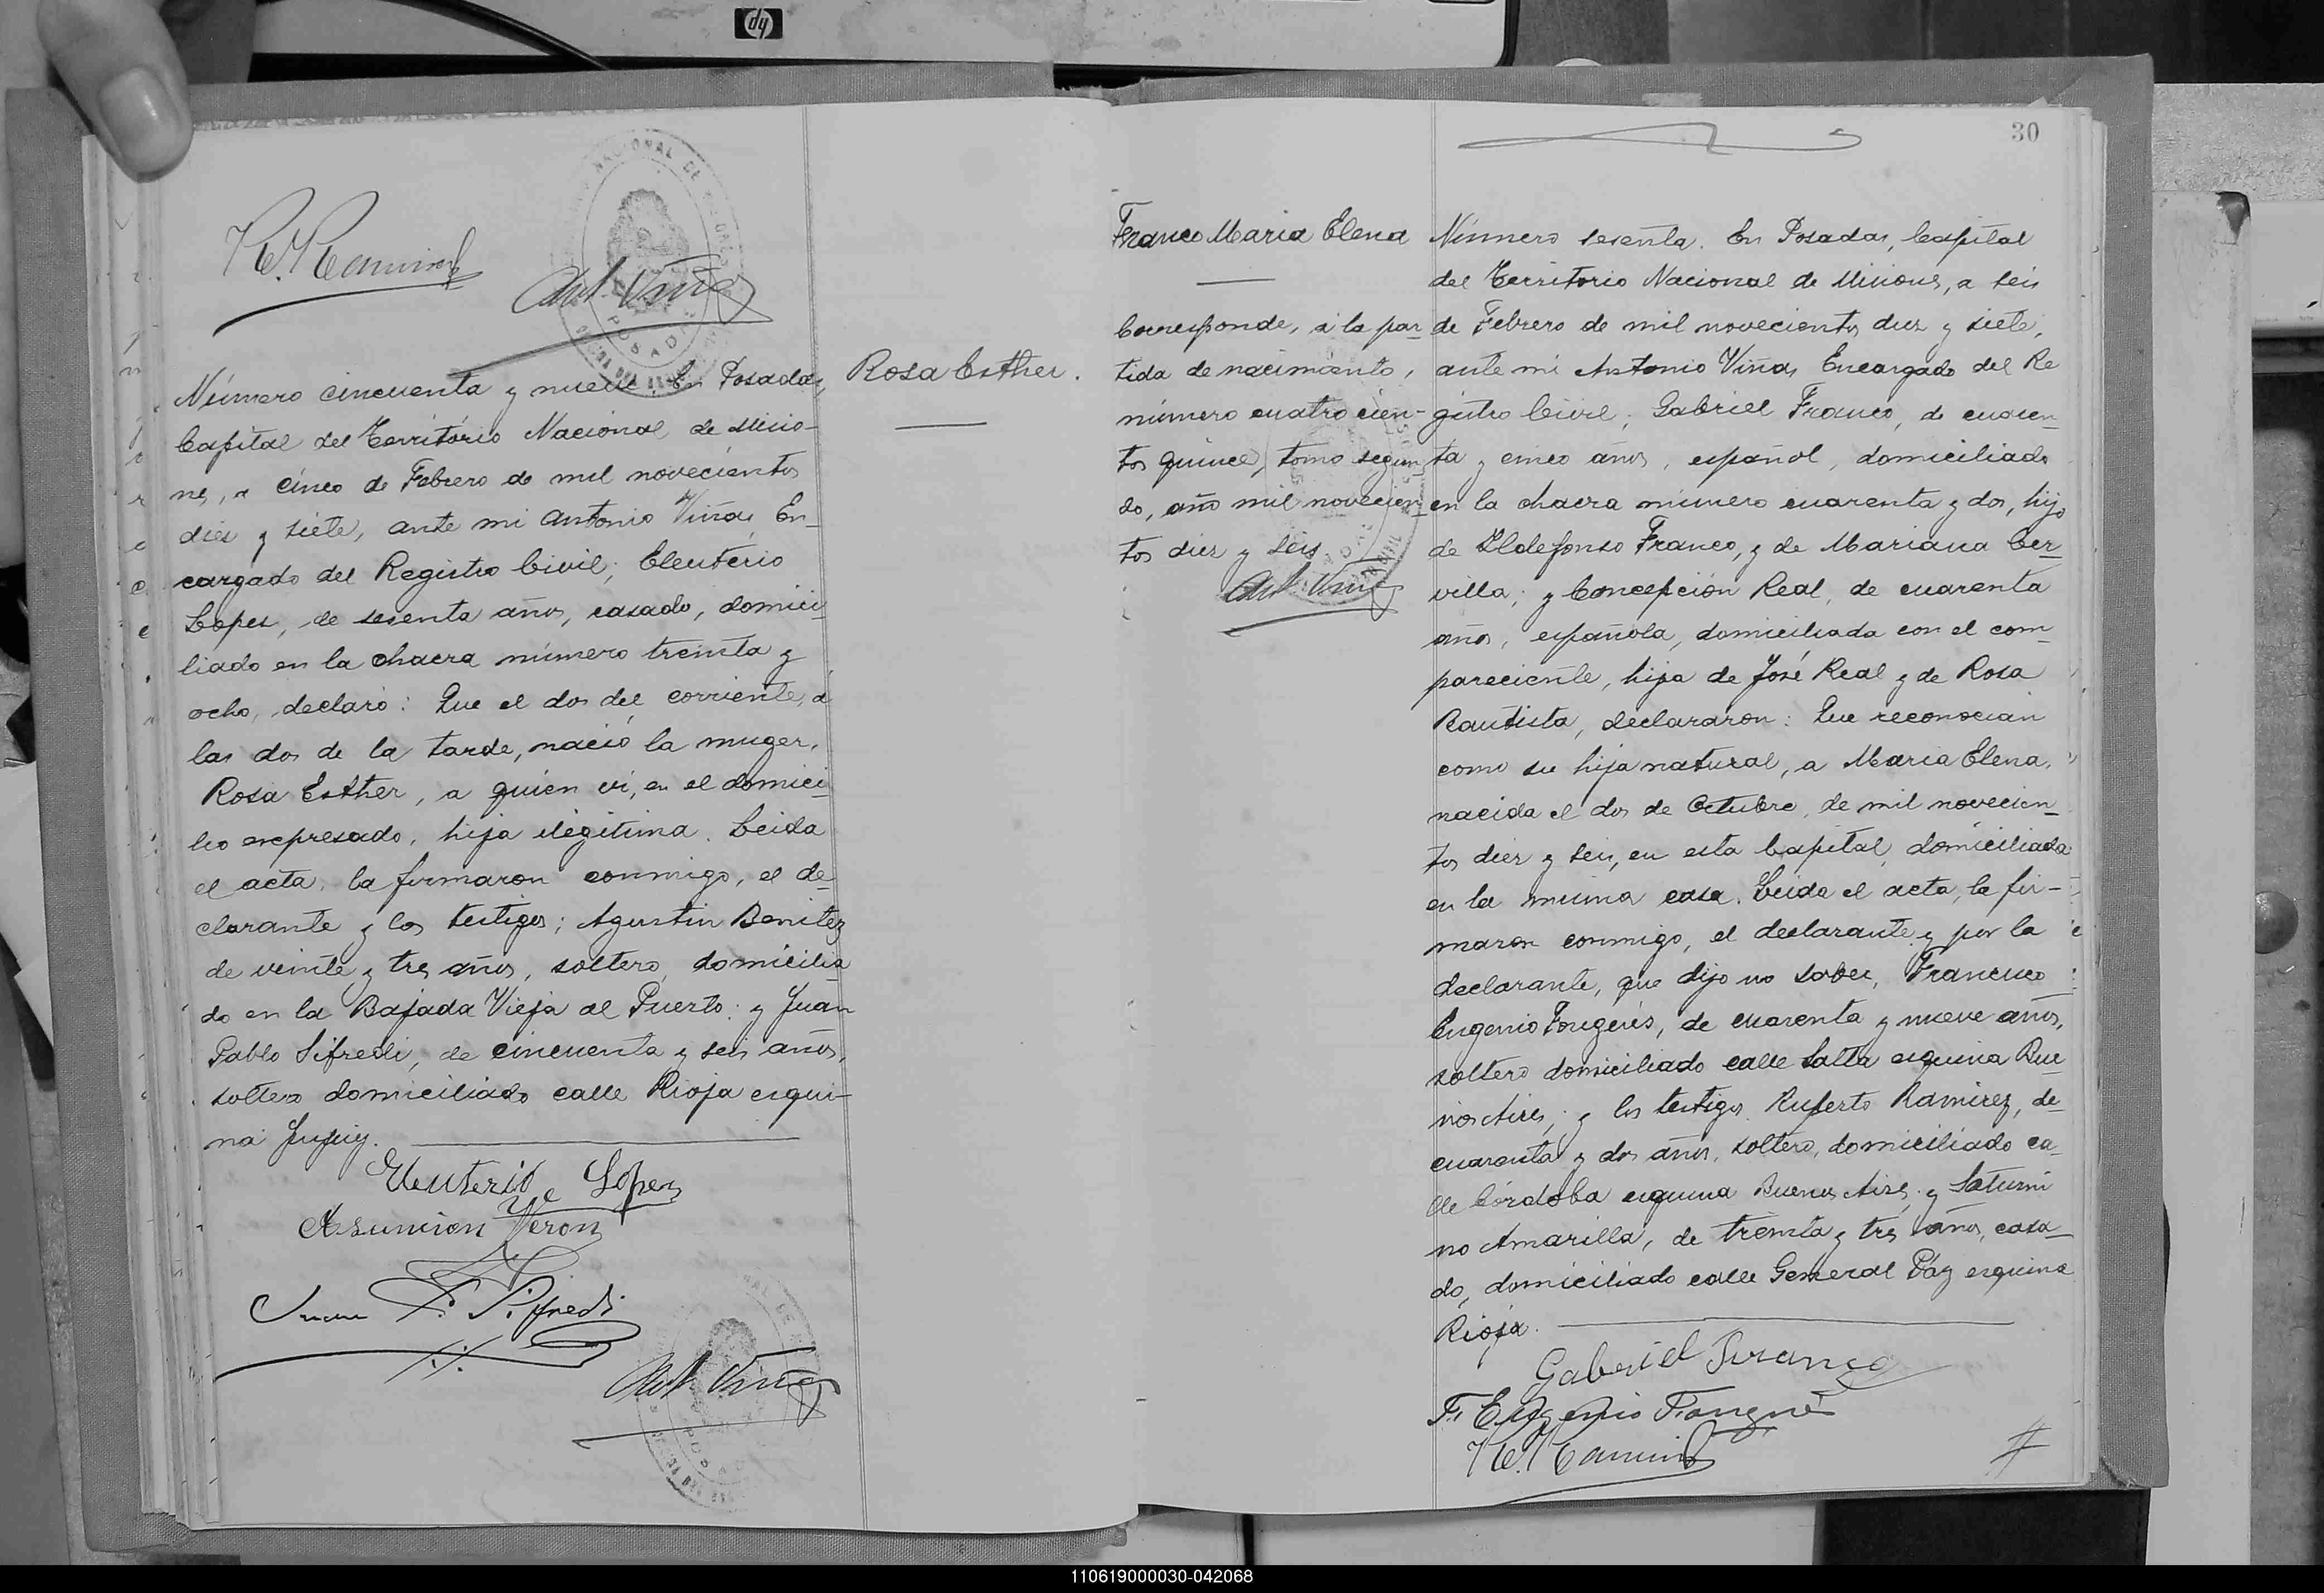 hp
R. Ramirez
Ant. Viñas
Número cincuenta y nueve. En Posadas,
Capital del Território Nacional de Misio-
nes, a cinco de Febrero de mil novecientos
diez y siete, ante mi Antonio Viñas En-
cargado del Registro Civil; Eleuterio
Lopez, de sesenta años, casado, domici-
liado en la chacra número treinta y
ocho, declaró: Que el dos del corriente, á
las dos de la tarde, nació la muger,
Rosa Esther, a quien vi, en el domici-
lio expresado, hija ilegitima. Leida
el acta, la firmaron conmigo, el de-
clarante y los testigos; Agustin Benitez
de veinte y tres años, soltero, domicilia
do en la Bajada Vieja al Puerto; y Juan
Pablo Sifredi, de cincuenta y seis años,
soltero domiciliado calle Rioja esqui-
na Jujuy.
Eleuterio Lopez
Asuncion Veron
Juan P. Sifredi
Ant. Viñas
Rosa Esther.
30
Franco Maria Elena
Corresponde, a la par-
tida de nacimiento,
número cuatro cien-
tos quince, tomo segun-
do, año mil novecien-
tos diez y seis
Ant. Viñas
Número sesenta. En Posadas, Capital
del Territorio Nacional de Misiones, a seis
de Febrero de mil novecientos diez y siete,
ante mi Antonio Viñas Encargado del Re
gistro Civil; Gabriel Franco, de cuaren-
ta y cinco años, español, domiciliado
en la chacra número cuarenta y dos, hijo
de Ildefonso Franco, y de Mariana Cer-
villa; y Concepción Real, de cuarenta
años, española, domiciliada con el com-
pareciente, hija de José Real y de Rosa
Bautista, declararon: Que reconocian
como su hija natural, a Maria Elena,
nacida el dos de Octubre, de mil novecien-
tos diez y seis, en esta Capital, domiciliada
en la misma casa. Leida el acta, la fir-
maron conmigo, el declarante y por la
declarante, que dijo no saber, Francisco
Eugenio Fougerès, de cuarenta y nueve años,
soltero domiciliado calle Salta esquina Bue
nos Aires; y los testigos Ruperto Ramirez, de
cuarenta y dos años, soltero, domiciliado ca-
lle Córdoba esquina Buenos Aires; y Saturni
no Amarilla, de treinta y tres años, casa-
do, domiciliado calle General Páz esquina
Rioja.
Gabriel Franco
F. Eugenio
R. Ramirez
110619000030-042068